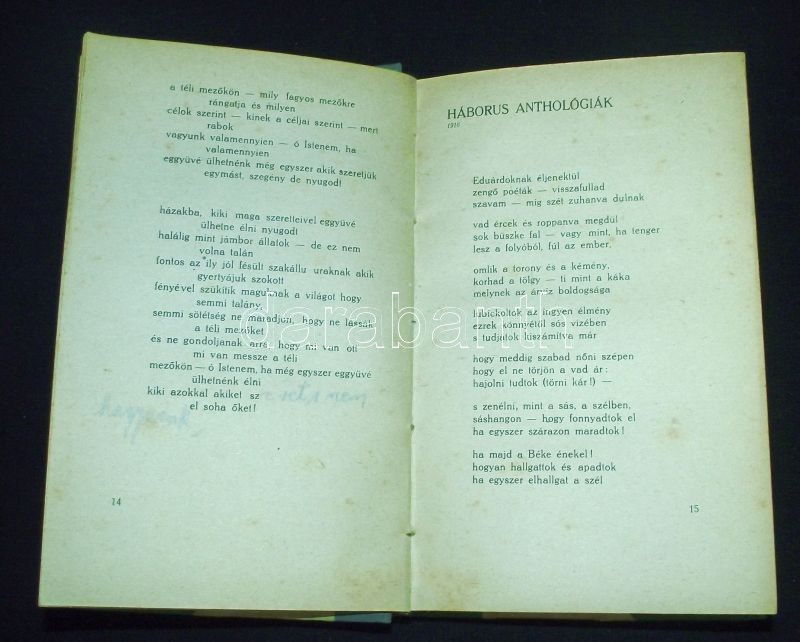 a téli mezőkön — mily fagyos mezőkre
rángatja és milyen
célok szerint — kinek a céljai szerint — mert
rabok
vagyunk valamennyien — ó Istenem, ha
valamennyien
együvé ülhetnénk még egyszer akik szeretjük
egymást, szegény de nyugodt
házakba, kiki maga szeretteivel együvé
ülhetne élni nyugodt
halálig mint jámbor állatok — de ez nem
volna talán
fontos az ily jól fésült szakállu uraknak akik
gyertyájuk szokott
fényével szükítik maguknak a világot hogy
semmi talány,
semmi sötétség ne maradjon, hogy ne lássák
a téli mezőket
és ne gondoljanak arra, hogy mi van ott
mi van messze a téli
mezőkön — ó Istenem, ha még egyszer együvé
ülhetnénk élni
kiki azokkal akiket sz
el soha őket!
hagynánk
14
HÁBORUS ANTHOLÓGIÁK
1916
Eduárdoknak éljenektül
zengő poéták — visszafullad
szavam — mig szét zuhanva dulnak
vad ércek és roppanva megdül
sok büszke fal — vagy mint, ha tenger
lesz a folyóból, fúl az ember,
omlik a torony és a kémény,
korhad a tölgy — ti mint a káka
melynek az árviz boldogsága
lubickoltok az ingyen élmény
ezrek könnyétül sós vizében
s tudjátok kiszámitva már
hogy meddig szabad nőni szépen
hogy el ne törjön a vad ár:
hajolni tudtok (törni kár!) —
s zenélni, mint a sás, a szélben,
sáshangon — hogy fonnyadtok el
ha egyszer szárazon maradtok!
ha majd a Béke énekel!
hogyan hallgattok és apadtok
ha egyszer elhallgat a szél
15
darabanth